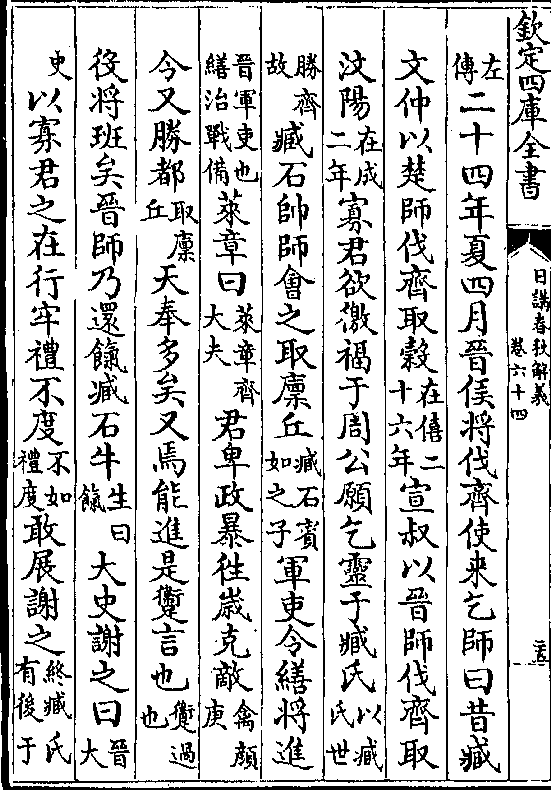 欽定四庫全書
日講春秋解義
卷六十四
左傳二十四年夏四月晉侯將伐齊使来乞師曰昔臧
文仲以楚師伐齊取穀在僖二十六年宣叔以晉師伐齊取
汶陽在成二年寡君欲徼福于周公願乞靈于臧氏以臧氏世
勝齊故臧石帥師會之取廪丘臧石賓如之子軍吏令繕將進
晉軍吏也繕治戰備萊章曰萊章齊大夫君卑政暴往歲克敵禽顏庚
今又勝都取廪丘天奉多矣又焉能進是躗言也躗過也
役將班矣晉師乃還餼臧石牛生曰餼大史謝之曰晉大
史以寡君之在行牢禮不度不如禮度敢展謝之終臧氏有後于